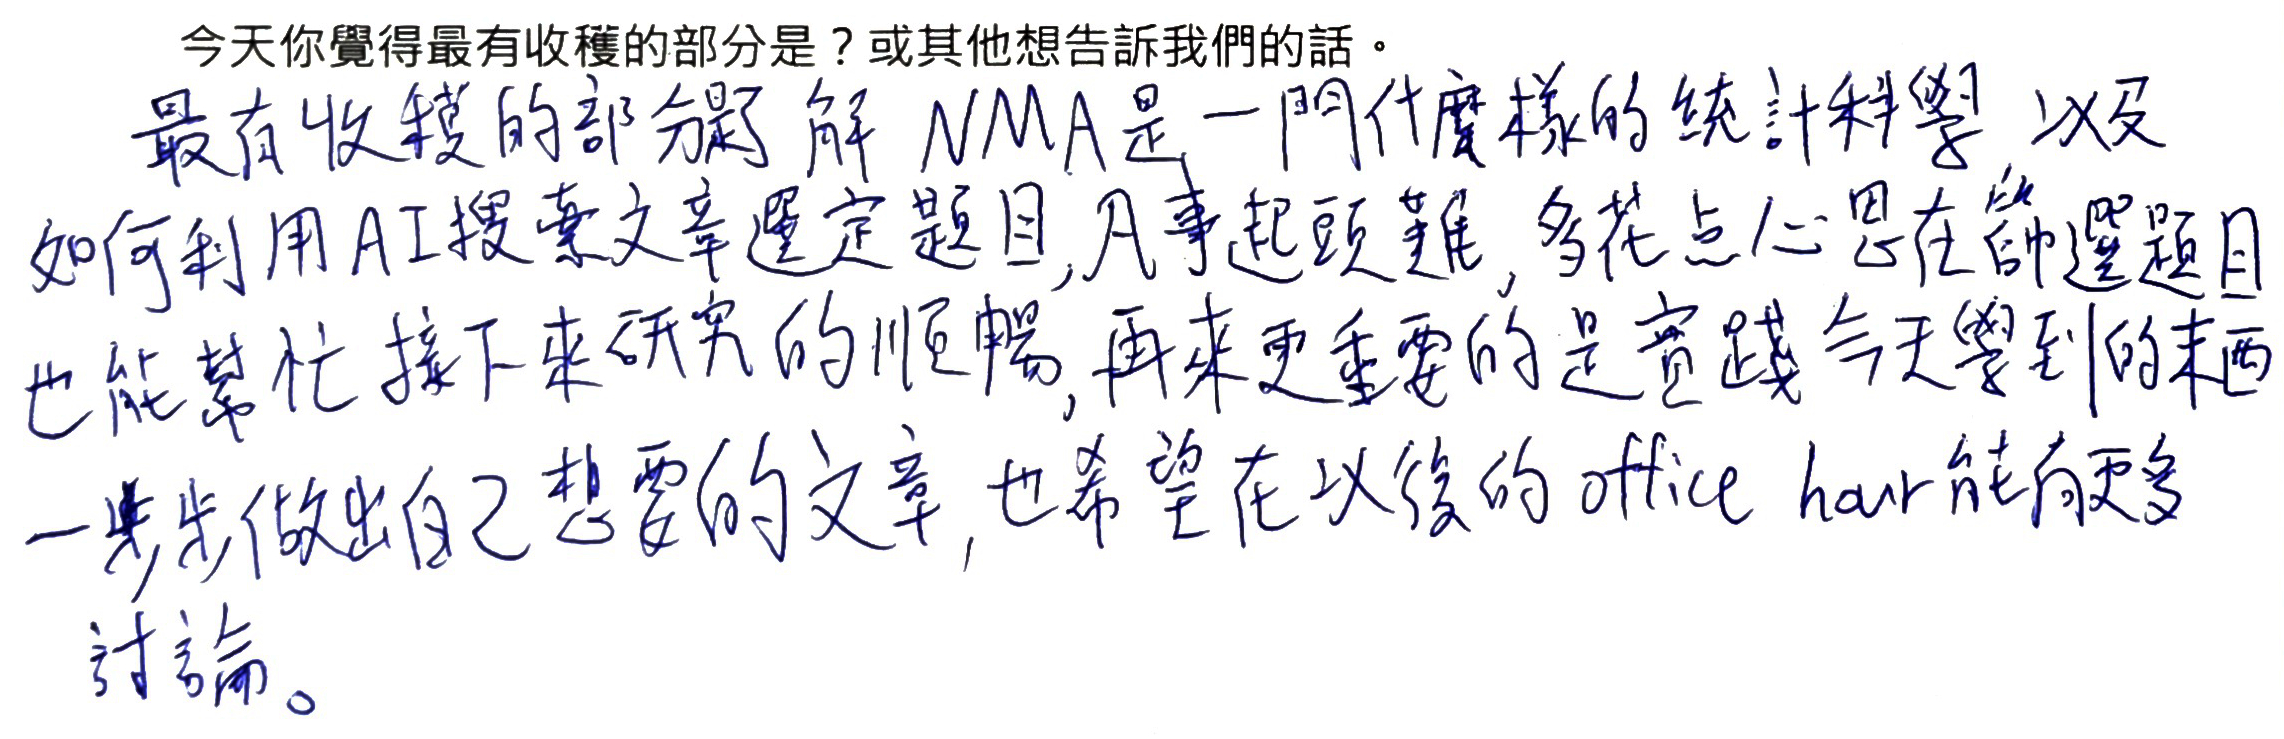 今天你覺得最有收穫的部分是？或其他想告訴我們的話。
最有收穫的部分是了解 NMA是一門什麼樣的統計科學，以及
如何利用AI搜索文章選定題目,凡事起頭難,多花点心思在篩選題目
也能幫忙接下來研究的順暢,再來更重要的是實踐今天學到的東西
一步步做出自己想要的文章,也希望在以後的 office hour 能有更多
討論。